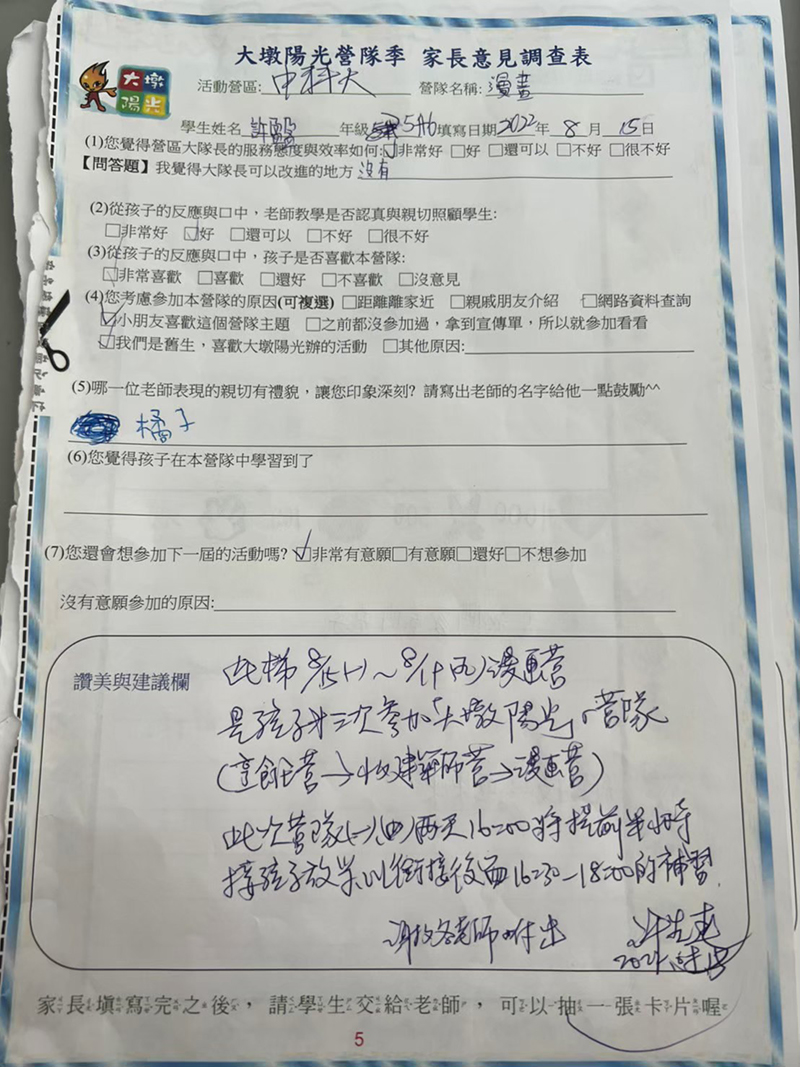 大墩陽光
大墩陽光營隊季 家長意見調查表
活動營區: 中科大 營隊名稱: 漫畫
學生姓名 許 年級 5升6 填寫日期 2022 年 8 月 15 日
(1)您覺得營區大隊長的服務態度與效率如何: □非常好 □好 □還可以 □不好 □很不好
【問答題】我覺得大隊長可以改進的地方 沒有
(2)從孩子的反應與口中，老師教學是否認真與親切照顧學生:
□非常好 ☑好 □還可以 □不好 □很不好
(3)從孩子的反應與口中，孩子是否喜歡本營隊:
☑非常喜歡 □喜歡 □還好 □不喜歡 □沒意見
(4)您考慮參加本營隊的原因(可複選) □距離離家近 □親戚朋友介紹 □網路資料查詢
☑小朋友喜歡這個營隊主題 □之前都沒參加過，拿到宣傳單，所以就參加看看
☑我們是舊生，喜歡大墩陽光辦的活動 □其他原因:
(5)哪一位老師表現的親切有禮貌，讓您印象深刻? 請寫出老師的名字給他一點鼓勵^^
橘子
(6)您覺得孩子在本營隊中學習到了
(7)您還會想參加下一屆的活動嗎? ☑非常有意願□有意願□還好□不想參加
沒有意願參加的原因:
讚美與建議欄
此梯8/15(一)~8/19(五)漫畫營
是孩子第三次參加「大墩陽光」營隊
營→小小建築師營→漫畫營)
此次營隊(一)(四)兩天16:00將提前半小時
接孩子放學,以銜接後面16:30-18:00的補習.
謝謝各老師的付出
許
家長填寫完之後，請學生交給老師，可以抽一張卡片喔
5